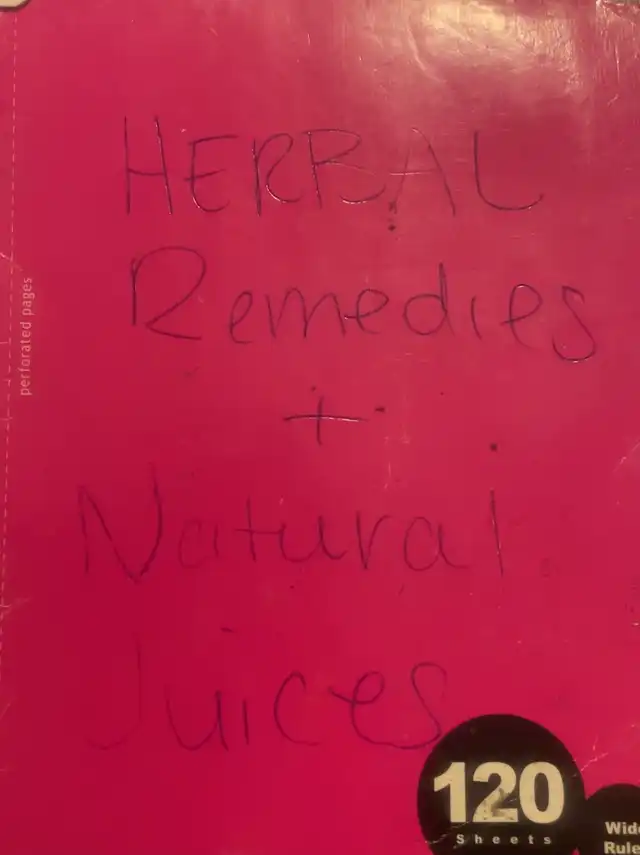 HERBAL
Remedies
+
Natural
Juices
perforated pages
120
Sheets
Wide
Rule